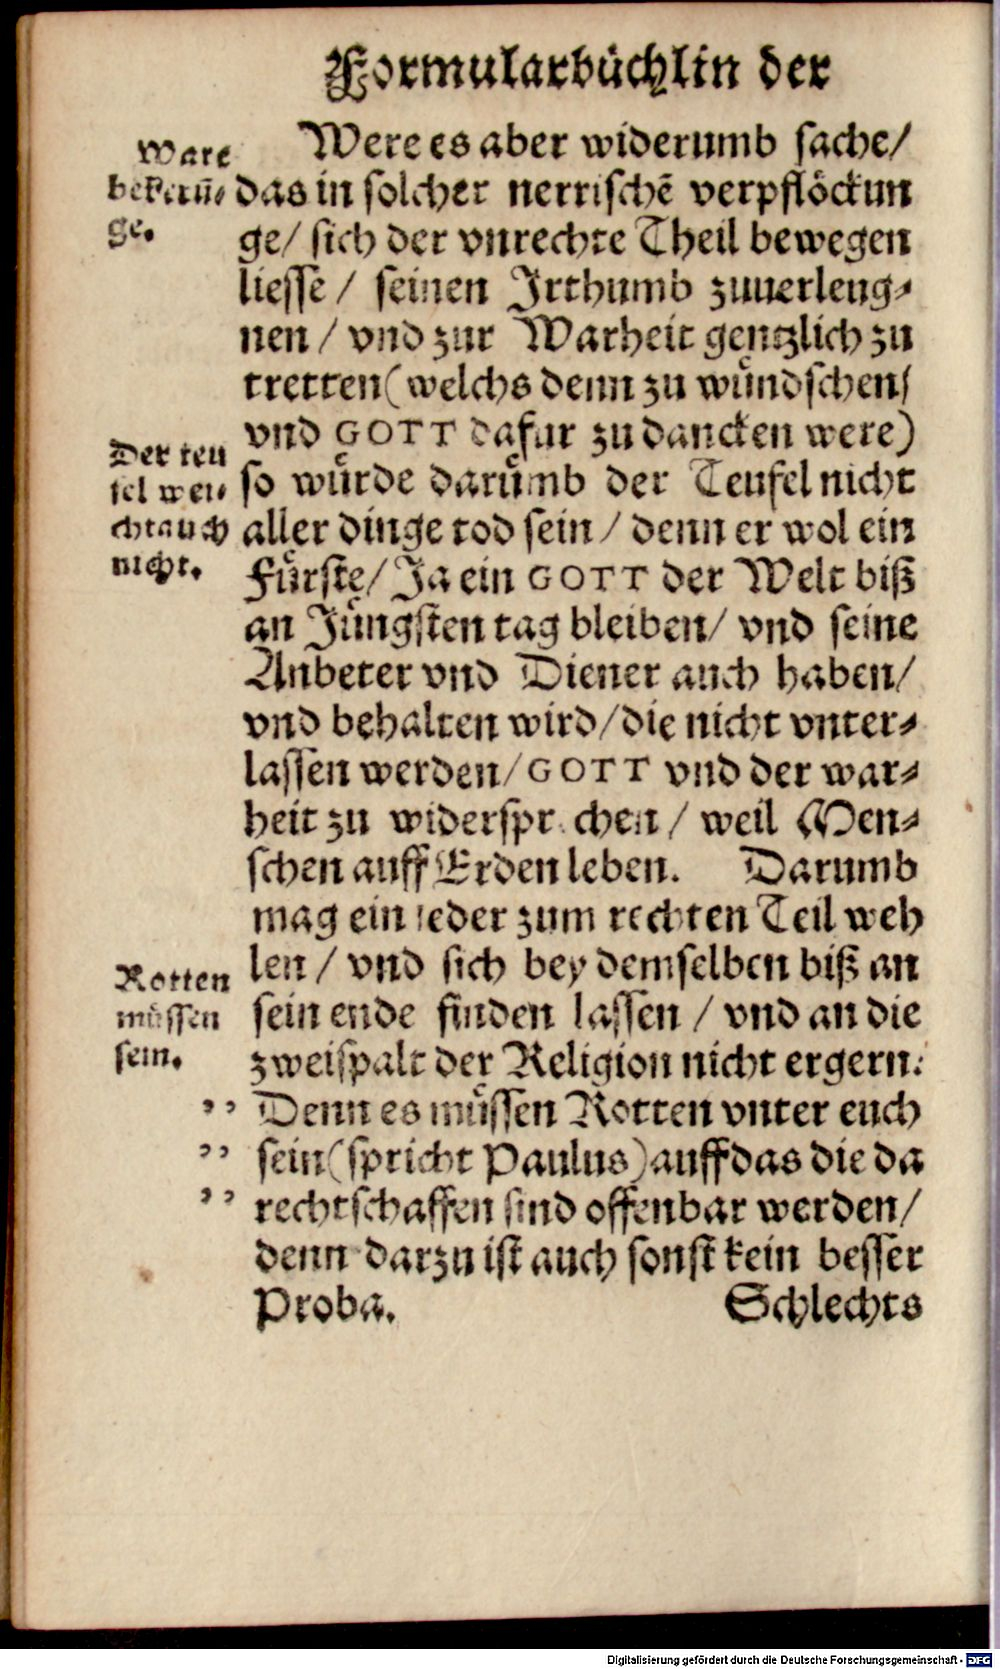 Formularbüchlin der
Were es aber widerumb sache/
das in solcher nerrischē verpflöckun
ge/ sich der vnrechte Theil bewegen
liesse / seinen Irthumb zuuerleug-
nen / vnd zur Warheit gentzlich zu
tretten (welchs denn zu wůndschen/
vnd GOTT dafur zu dancken were)
so wůrde darůmb der Teufel nicht
aller dinge tod sein / denn er wol ein
Fůrste/ Ja ein GOTT der Welt biß
an Jůngsten tag bleiben/ vnd seine
Anbeter vnd Diener auch haben/
vnd behalten wird/ die nicht vnter-
lassen werden/ GOTT vnd der war-
heit zu widersprechen / weil Men-
schen auff Erden leben. Darumb
mag ein ieder zum rechten Teil weh
len / vnd sich bey demselben biß an
sein ende finden lassen / vnd an die
zweispalt der Religion nicht ergern.
Denn es můssen Rotten vnter euch
sein (spricht Paulus) auff das die da
rechtschaffen sind offenbar werden/
denn darzu ist auch sonst kein besser
Proba.
Schlechts
Ware
bekeñ-
ge.
Der teu
fel wei-
cht auch
nicht.
Rotten
můssen
sein.
,,
,,
,,
Digitalisierung gefördert durch die Deutsche Forschungsgemeinschaft - DFG